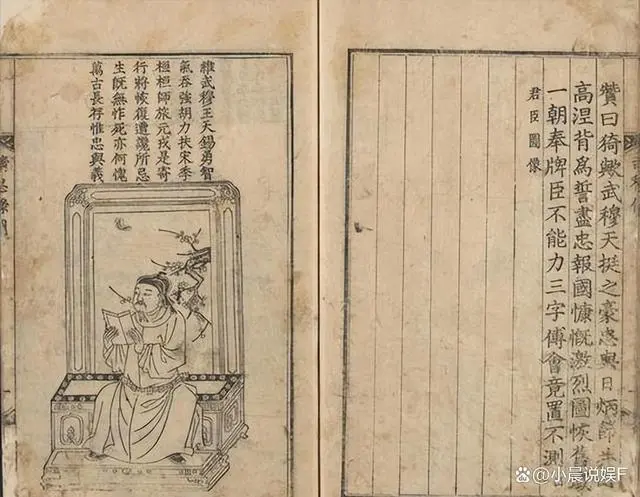 贊曰猗歟武穆天挺之豪忠與日炳節
高涅背為誓盡忠報國慷慨激烈圖恢
一朝奉牌臣不能力三字傅會竟置不測
君臣圖像
維武穆王天錫勇智
氣吞強胡力扶宋季
桓桓師旅元戎是寄
行將恢復遭讒所忌
生旣無怍死亦何愧
萬古長存惟忠與義
小晨说娱F